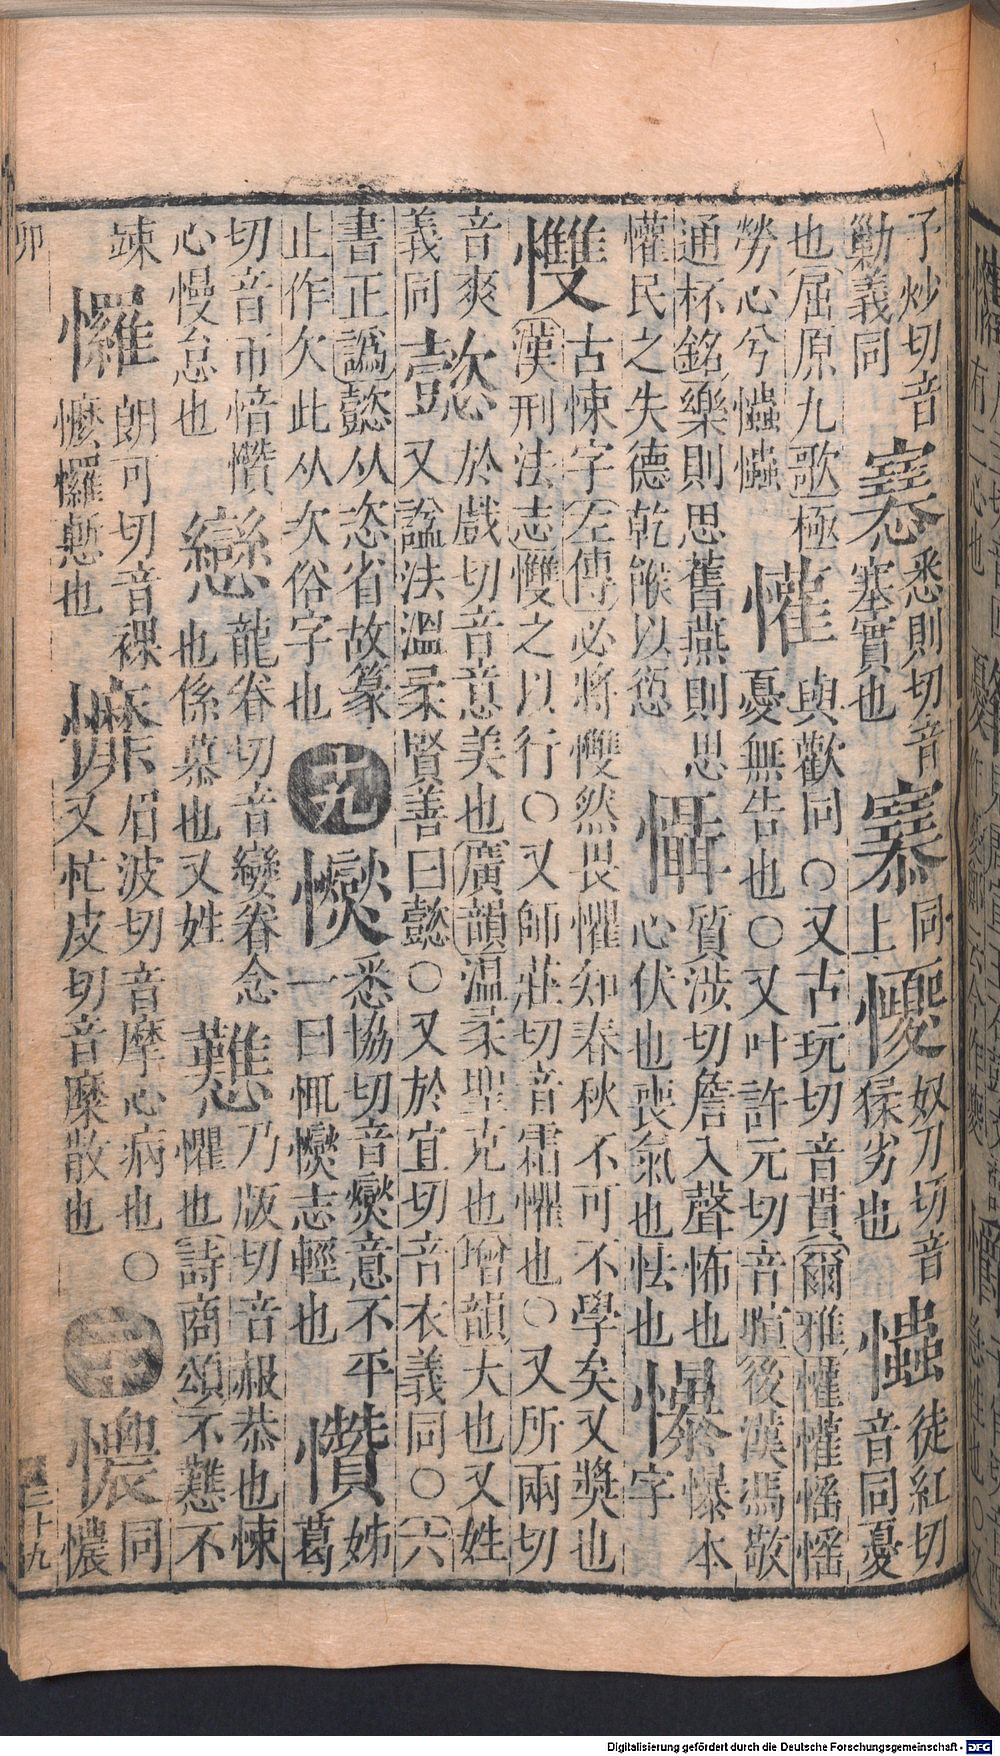 子炒切音
勦義同
𡫳
悉則切音
塞實也
𢥠
同
上
㺜
奴刀切音
猱劣也
爞
徒紅切
音同憂
也屈原九歌極
勞心兮㦂㦂
懽
與歡同〇又古玩切音貫爾雅懽懽愮愮
憂無告也〇又叶許元切音暄後漢馮敬
通杯銘樂則思舊燕則思
懽民之失德乾餱以愆
懾
質涉切詹入聲怖也
心伏也喪氣也怯也
懪
爆本
字
㩳
古悚字左傳必將戄然畏懼知春秋不可不學矣又奬也
漢刑法志㩳之以行〇又師莊切音霜懼也〇又所兩切
音爽
義同
懿
於戲切音意美也廣韻溫柔聖克也增韻大也又姓
又諡法溫柔賢善曰懿〇又於宜切音衣義同〇六
書正譌懿从恣省故篆
止作欠此从次俗字也
十九
㦪
悉協切音燮意不平
一曰恇㦪志輕也
㦫
姊葛
切音帀愔㦫
心慢怠也
戀
龍眷切音孿眷念
也係慕也又姓
戁
乃版切音赧恭也悚
懼也詩商頌不戁不
竦
㦬
朗可切音裸
㦄㦬慙也
㦄
眉波切音摩心病也〇
又忙皮切音糜散也
二十
㦳
同
憹
卯
三十九
Digitalisierung gefördert durch die Deutsche Forschungsgemeinschaft - DFG